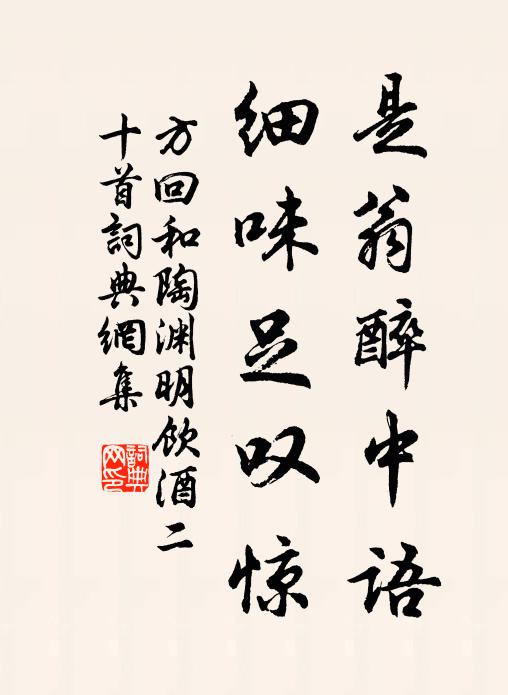 是翁醉中语
细味足叹惊
方回和陶渊明饮酒二
十首詞典網集
詞典
网印